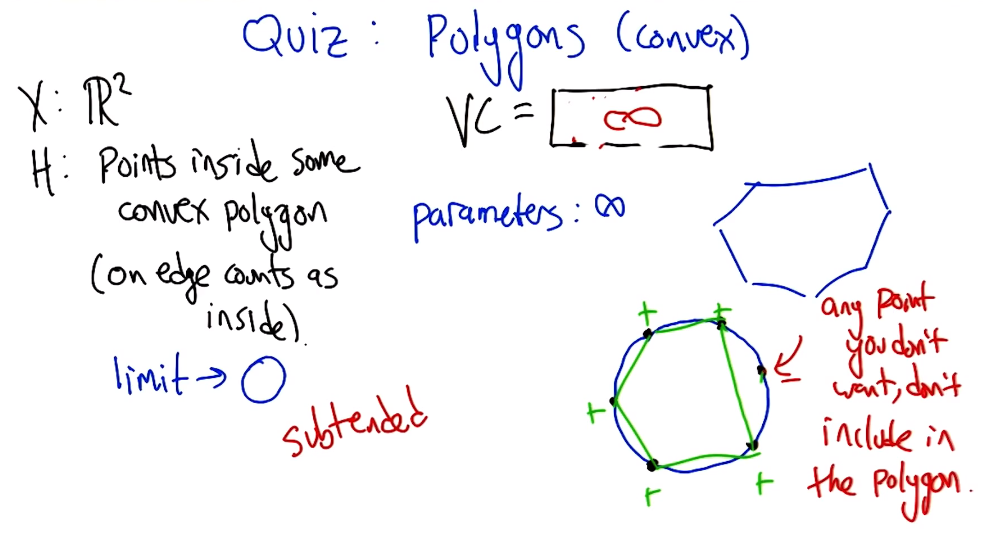 Quiz: Polygons (convex)
X: ℝ²
VC = ∞
H: Points inside some
convex polygon
(on edge counts as
inside).
parameters: ∞
limit → ○
subtended
+ +
+
+ +
-
any point
you don't
want, don't
include in
the polygon.